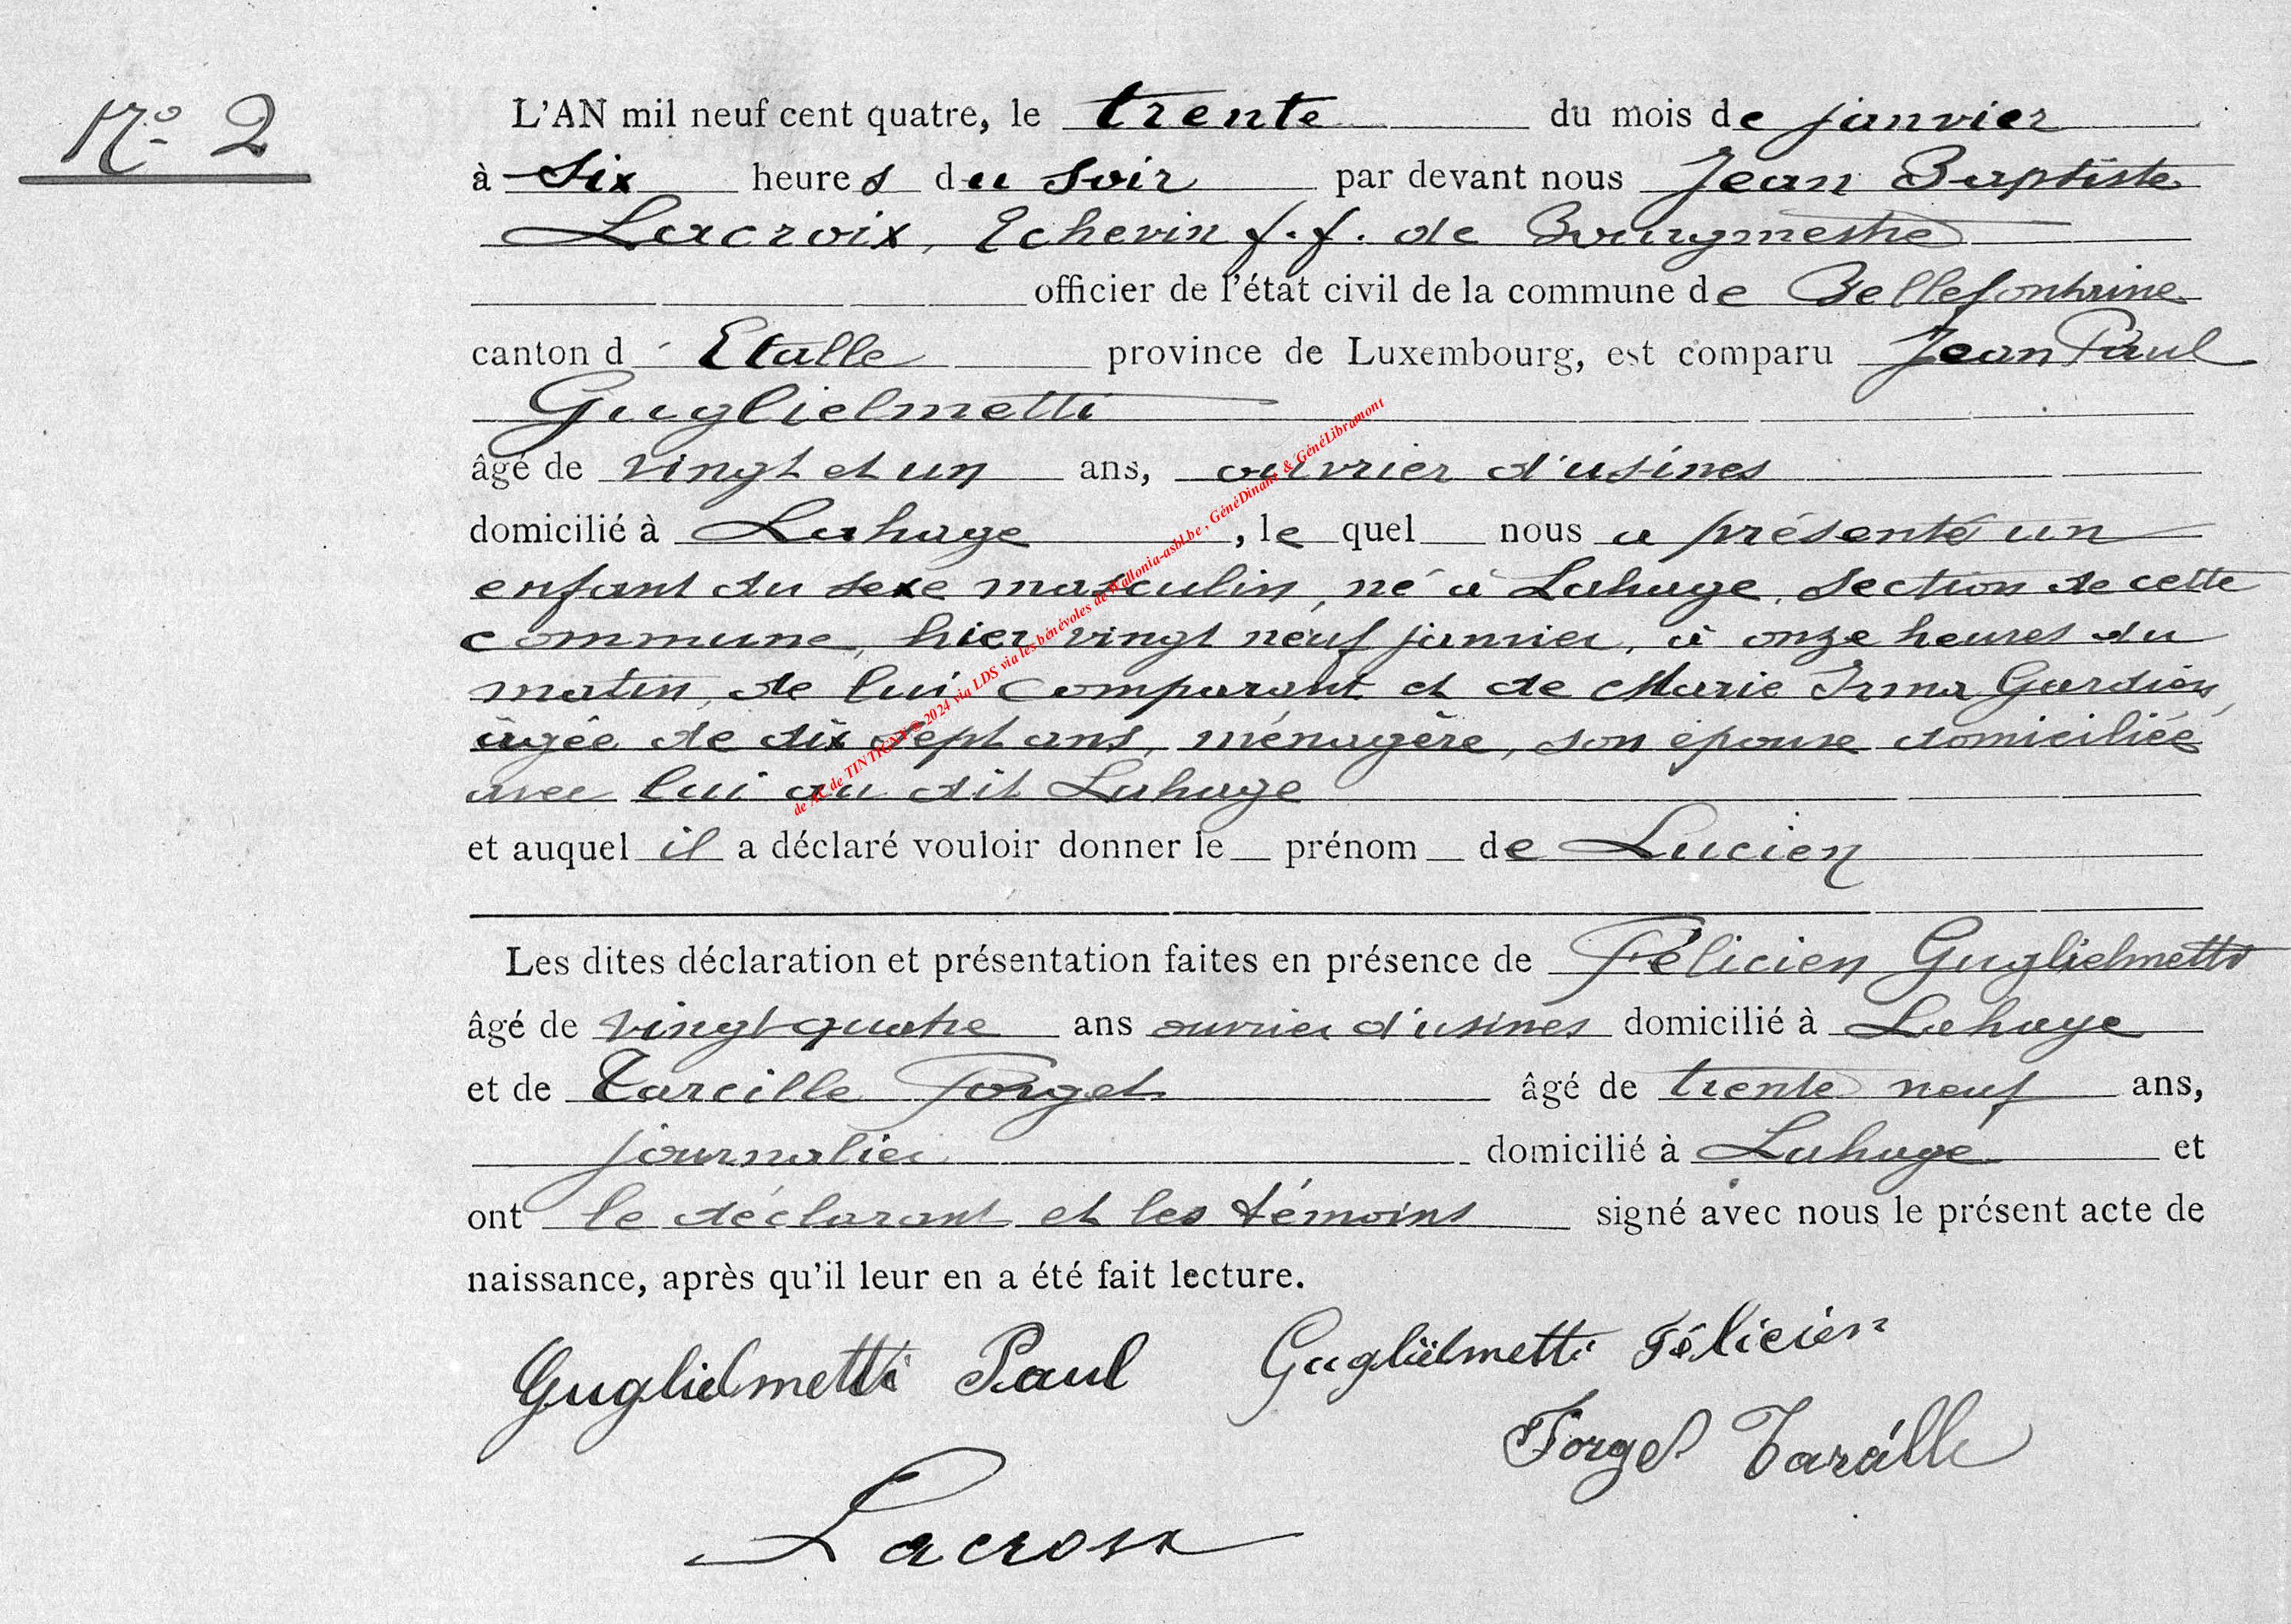 N° 2
L'AN mil neuf cent quatre, le trente du mois de janvier
à six heures du soir par devant nous Jean Baptiste
Lacroix, Echevin f.f. de Bourgmestre
officier de l'état civil de la commune de Bellefontaine
canton d'Etalle province de Luxembourg, est comparu Jean Paul
Guglielmetti
âgé de vingt et un ans, ouvrier d'usines
domicilié à Lahage, le quel nous a présenté un
enfant du sexe masculin, né à Lahage, section de cette
commune, hier vingt neuf janvier, à onze heures du
matin, de lui comparant et de Marie Irma Gardien,
âgée de dix sept ans, ménagère, son épouse domiciliée
avec lui au dit Lahage
et auquel il a déclaré vouloir donner le prénom de Lucien
Les dites déclaration et présentation faites en présence de Félicien Guglielmetti
âgé de vingt quatre ans ouvrier d'usines domicilié à Lahage
et de Tarcille Forget âgé de trente neuf ans,
journalier domicilié à Lahage et
ont le déclarant et les témoins signé avec nous le présent acte de
naissance, après qu'il leur en a été fait lecture.
Guglielmetti Paul Guglielmetti Félicien
Forget Tarcille
Lacroix
de AC de TINTIGNY © 2024 via LDS via les bénévoles de Wallonia-asbl.be, GénéDinant & GénéLibramont